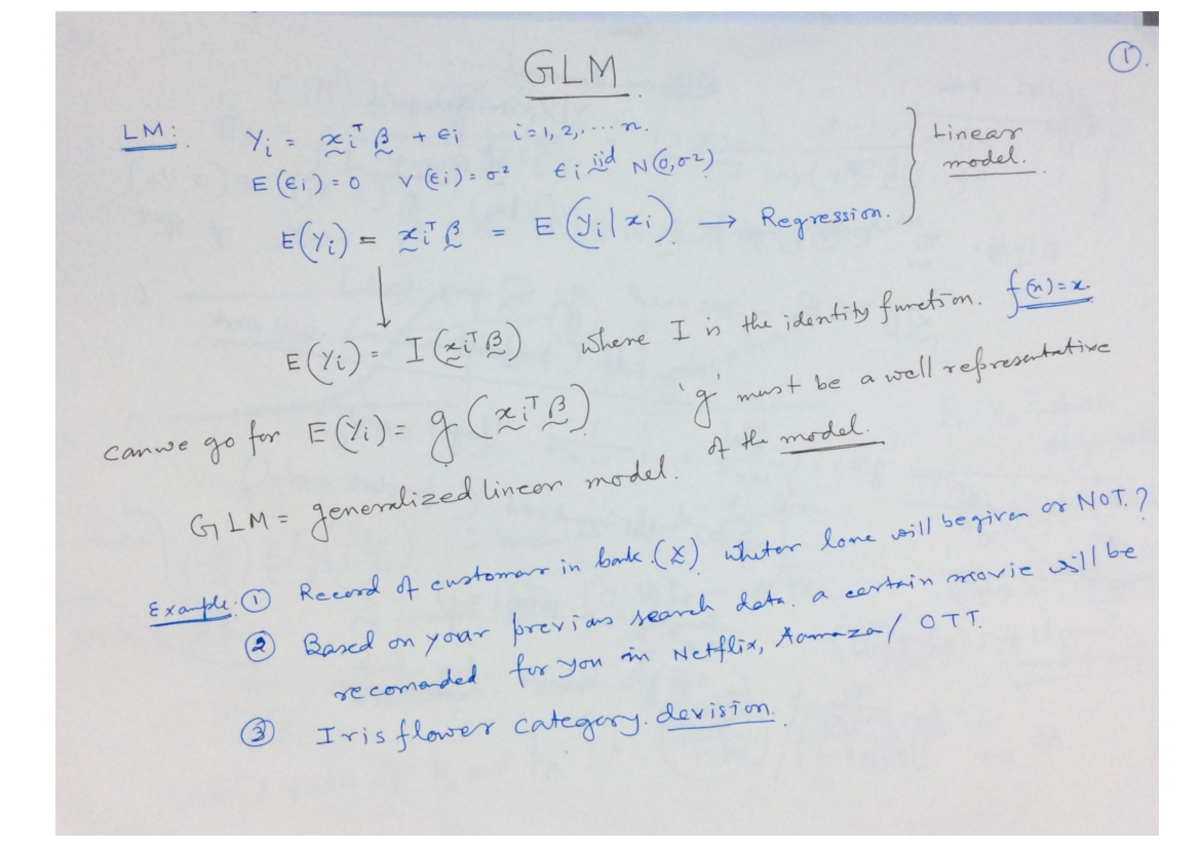 GLM
①.
LM: Yᵢ = xᵢᵀ β + ϵᵢ i = 1, 2, .... n.
E(ϵᵢ) = 0 V(ϵᵢ) = σ² ϵᵢ iid N(0, σ²)
E(Yᵢ) = xᵢᵀ β = E(yᵢ | xᵢ). → Regression.
} Linear
model.
↓
E(Yᵢ) = I(xᵢᵀ β) where I is the identity function. f(x) = x.
can we go for E(Yᵢ) = g(xᵢᵀ β) 'g' must be a well representative
of the model.
GLM = generalized linear model.
Example: ① Record of customar in bank. (X) wheter lone will be given or NOT.?
② Based on your previous search data. a certain movie will be
recomanded for you in Netflix, Aamaza/ OTT.
③ Iris flower category. devision.